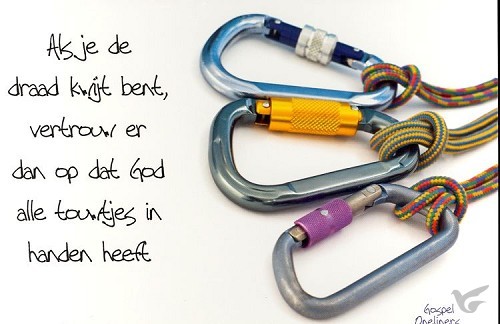 Als je de
draad kwijt bent,
vertrouw er
dan op dat God
alle touwtjes in
handen heeft
Gospel
Oneliners